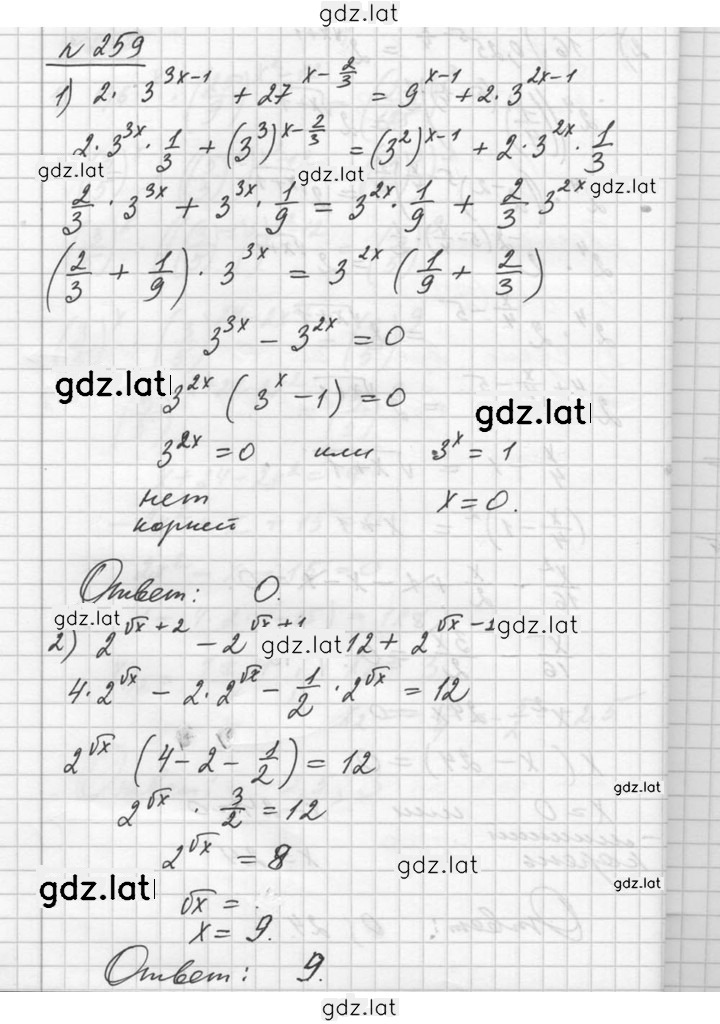 gdz.lat
№ 259
1) 2·3^(3x-1) + 27^(x-2/3) = 9^(x-1) + 2·3^(2x-1)
2·3^(3x)·1/3 + (3^3)^(x-2/3) = (3^2)^(x-1) + 2·3^(2x)·1/3
gdz.lat gdz.lat gdz.lat
2/3·3^(3x) + 3^(3x)·1/9 = 3^(2x)·1/9 + 2/3·3^(2x)
(2/3 + 1/9)·3^(3x) = 3^(2x)(1/9 + 2/3)
3^(3x) - 3^(2x) = 0
gdz.lat 3^(2x)(3^x - 1) = 0 gdz.lat
3^(2x) = 0 или 3^x = 1
нет x = 0.
корней
Ответ: 0.
gdz.lat gdz.lat gdz.lat
2) 2^(√x+2) - 2^(√x+1) 12 + 2^(√x-1)
4·2^(√x) - 2·2^(√x) - 1/2·2^(√x) = 12
2^(√x)(4 - 2 - 1/2) = 12
gdz.lat
2^(√x)·3/2 = 12
2^(√x) = 8
gdz.lat gdz.lat gdz.lat
√x =
x = 9.
Ответ: 9.
gdz.lat